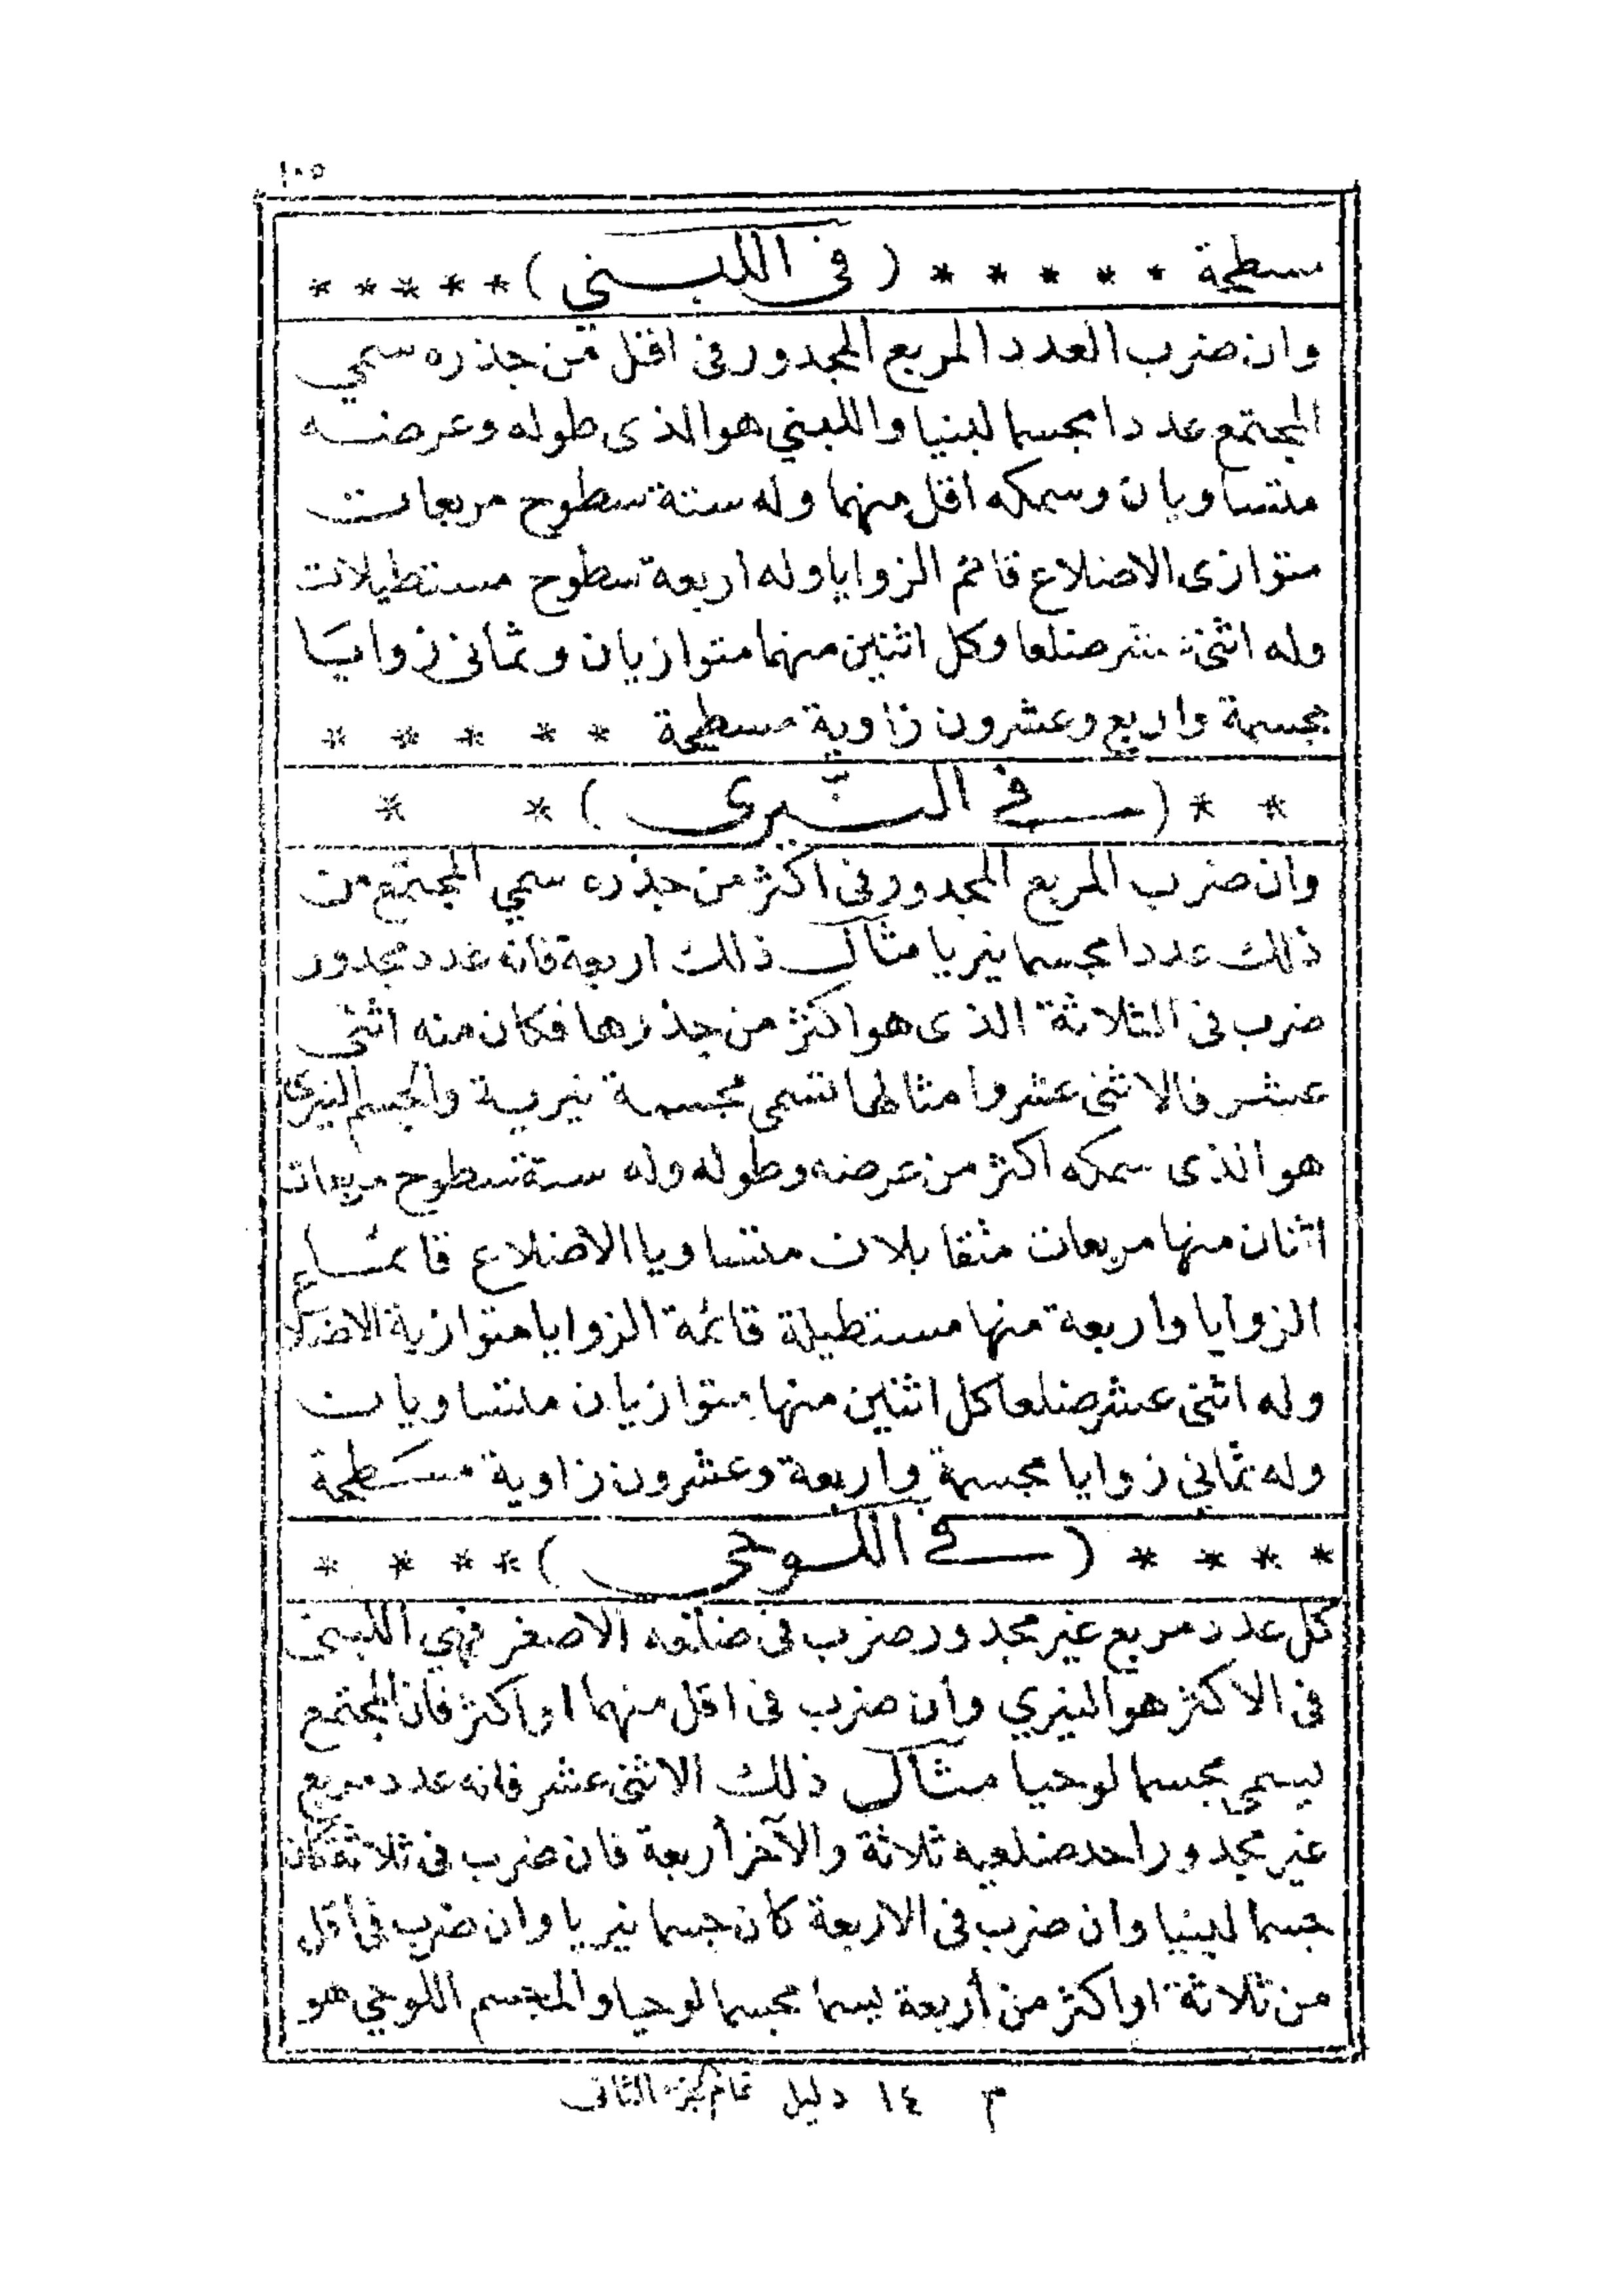 ١٠٥
سطحة * * * * * ( فى اللبني ) * * * * *
وان ضرب العدد المربع المجدور فى اقل من جذره سمي
المجتمع عددا مجسما لبنيا واللبني هو الذى طوله وعرضه
متساويان وسمكه اقل منهما وله ستة سطوح مربعات
متوازى الاضلاع قائم الزوايا وله اربعة سطوح مستطيلات
وله اثنى عشر ضلعا وكل اثنين منهما متوازيان وثمانى زوايا
مجسمة واربع وعشرون زاوية مسطحة * * * * *
* * ( فى البيرى ) * *
وان ضرب المربع المجدور فى اكثر من جذره سمي المجتمع من
ذلك عددا مجسما بيريا مثال ذلك اربعة فانه عدد مجدور
ضرب فى الثلاثة الذى هو اكثر من جذرها فكان منه اثنى
عشر فالاثنى عشر وامثالها تسمى مجسمة بيرية والجسم البيرى
هو الذى سمكه اكثر من عرضه وطوله وله ستة سطوح مربعات
اثنان منها مربعان متقابلان متساويا الاضلاع قائما
الزوايا واربعة منها مستطيلة قائمة الزوايا متوازية الاضلاع
وله اثنى عشر ضلعا كل اثنين منها متوازيان متساويان
وله ثمانى زوايا مجسمة واربعة وعشرون زاوية مسطحة
* * * * ( فى اللوحى ) * * * *
كل عدد مربع غير مجدور ضرب فى ضلعه الاصغر فهي اللبنى
فى الاكثر هو البيري وان ضرب فى اقل منهما او اكثر فان المجتمع
يسمى مجسما لوحيا مثال ذلك الاثنى عشر فانه عدد مربع
غير مجدور احد ضلعيه ثلاثة والآخر أربعة فان ضرب فى ثلاثة كان
جسما لبنيا وان ضرب فى الاربعة كان جسما بيريا وان ضرب فى اقل
من ثلاثة او اكثر من أربعة يسما مجسما لوحيا والمجسم اللوحي هو
م ١٤ دليل تمام الجزء الثانى